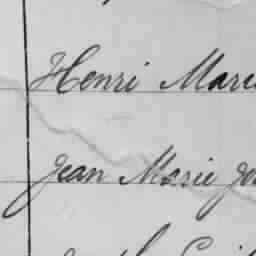 Henri Marc
Jean Marie Jo